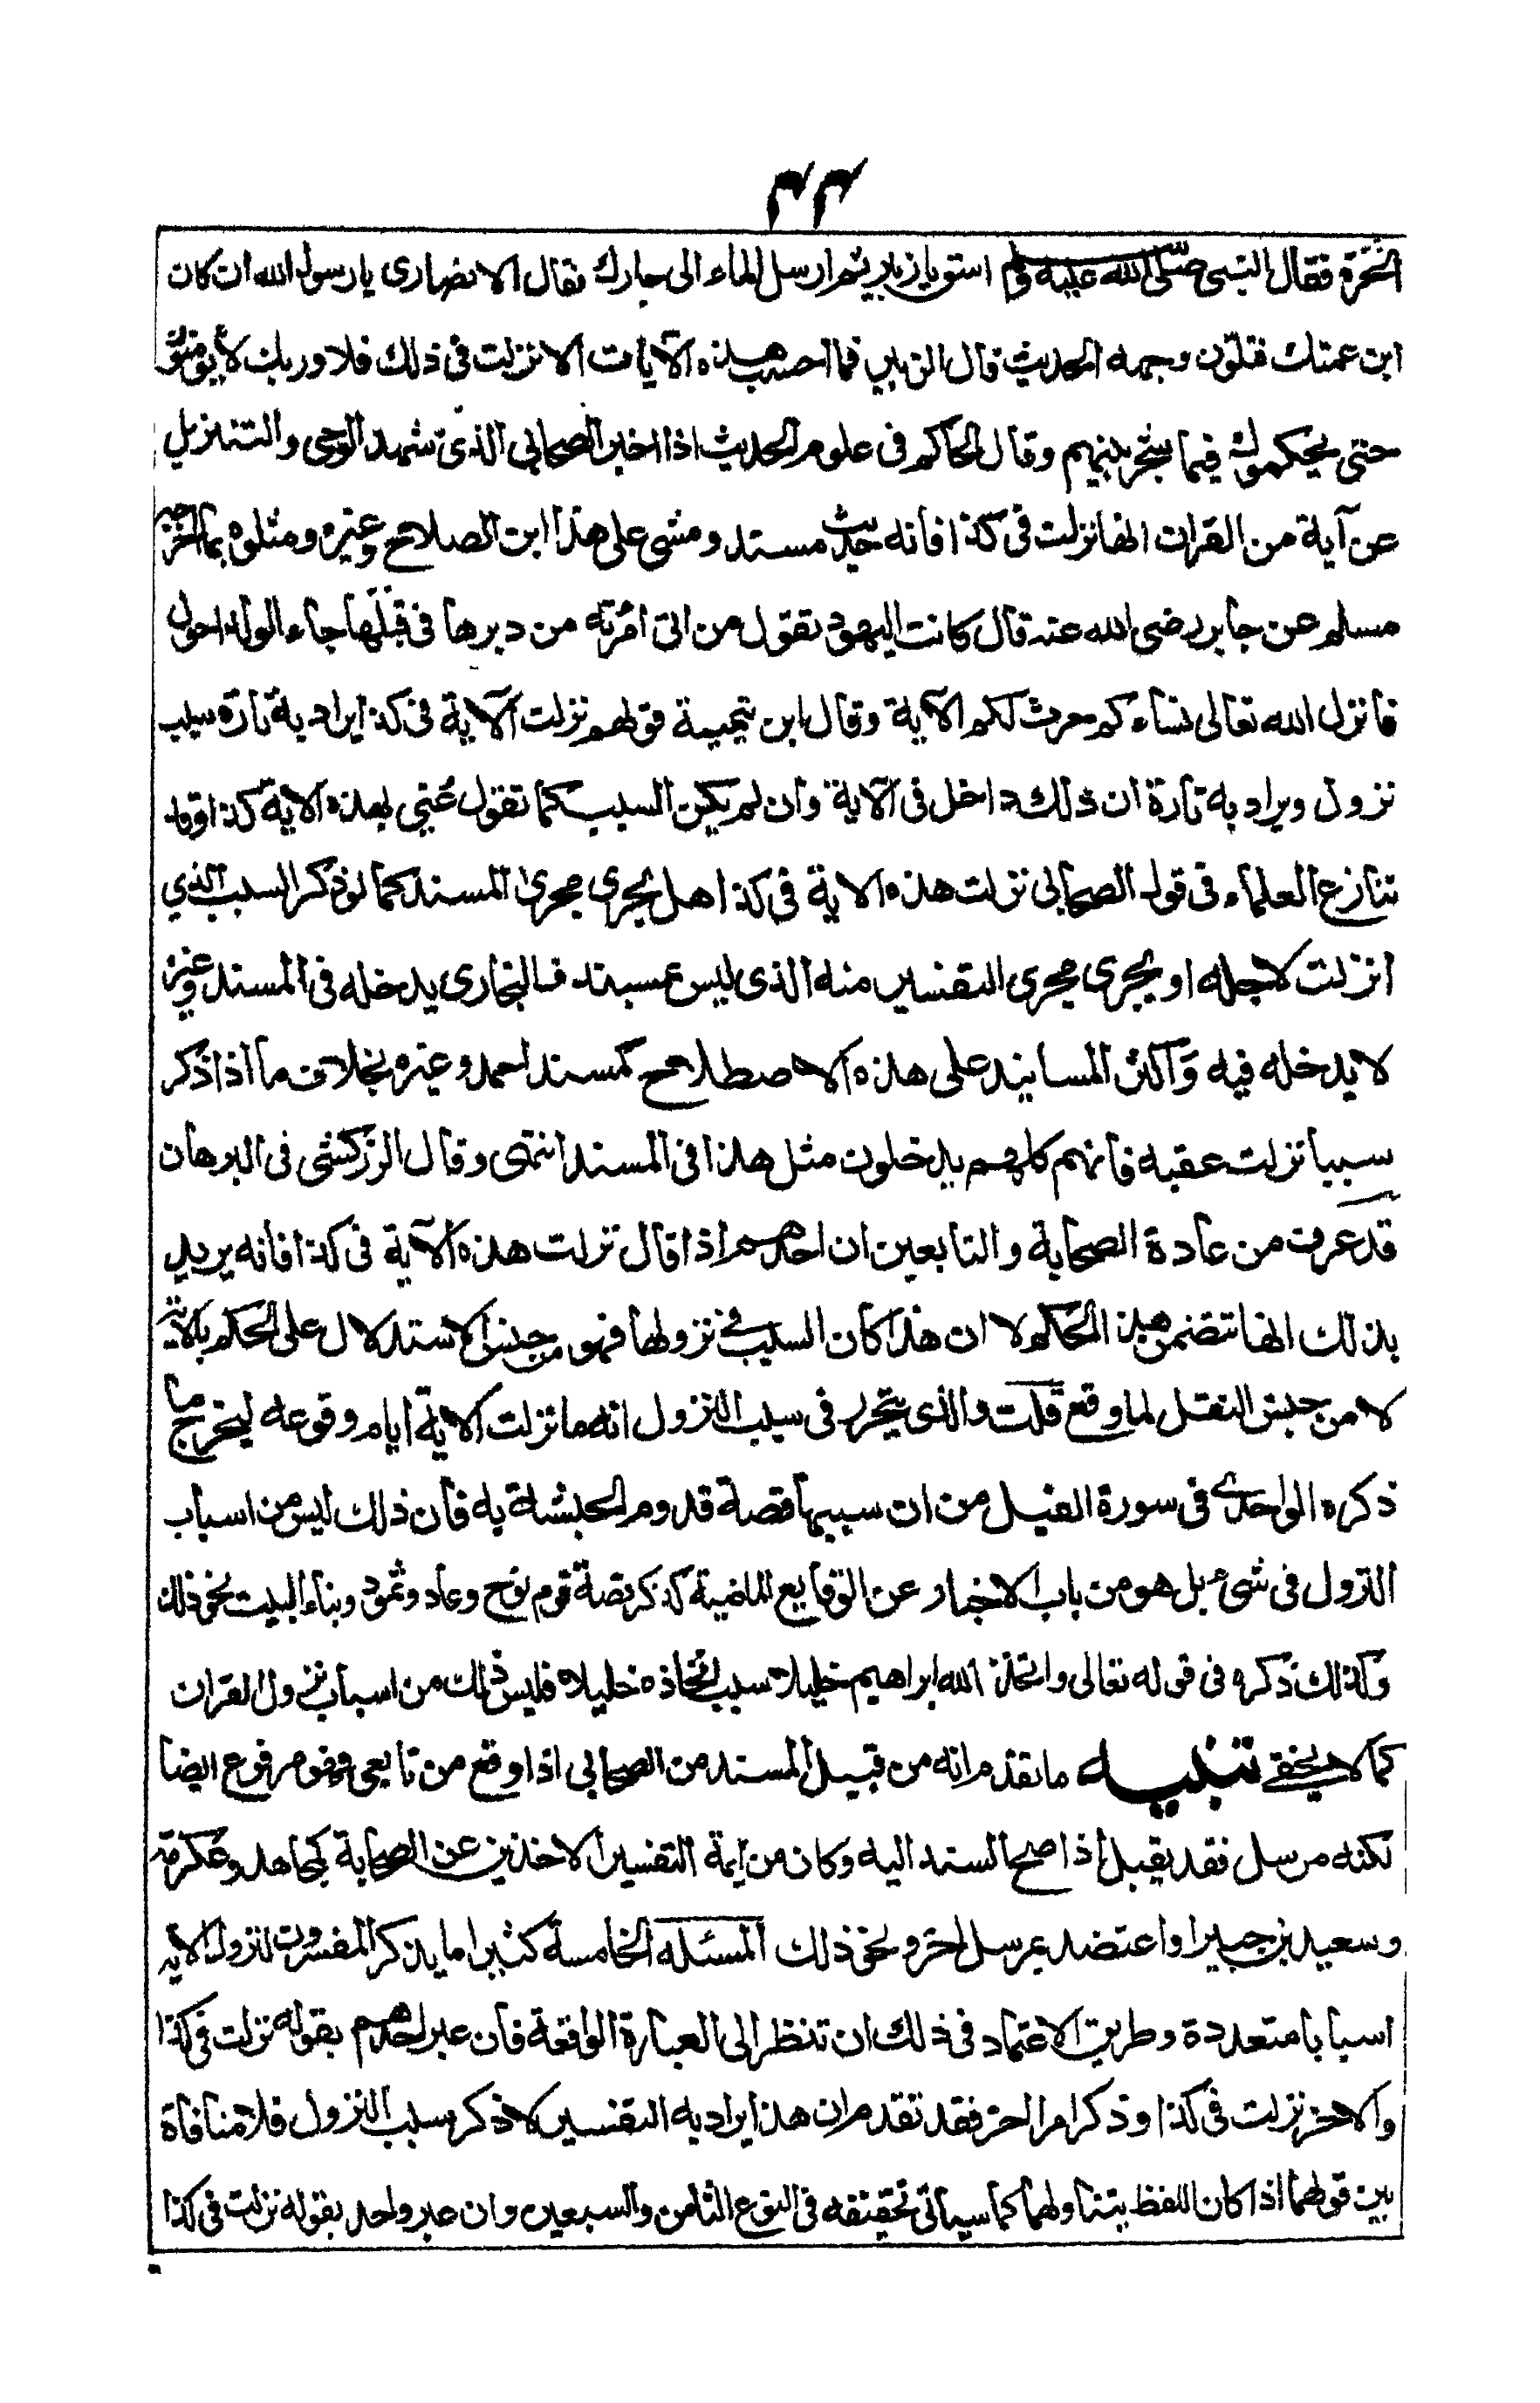 ٣٣
الحرة فقال النبى صلى الله عليه وسلم استق يا زبير ثم ارسل الماء الى جارك فقال الانصارى يا رسول الله ان كان
ابن عمتك فتلون وجهه الحديث قال الزبير فما احسب هذه الآيات الا نزلت فى ذلك فلا وربك لا يؤمنون
حتى يحكموك فيما شجر بينهم وقال الحاكم فى علوم الحديث اذا اخبر الصحابي الذى شهد الوحى والتنزيل
عن آية من القران انها نزلت فى كذا فانه حديث مسند ومشى على هذا ابن الصلاح وغيره ومثلوه بما اخرجه
مسلم عن جابر رضى الله عنه قال كانت اليهود تقول من اتى امرته من دبرها فى قبلها جاء الولد احول
فانزل الله تعالى نساءكم حرث لكم الآية وقال ابن تيمية قولهم نزلت الآية فى كذا يراد به تارة سبب
نزول ويراد به تارة ان ذلك داخل فى الآية وان لم يكن السبب كما تقول عني بهذه الاية كذا وقد
تنازع العلماء فى قول الصحابى نزلت هذه الاية فى كذا هل يجرى مجرى المسند كما لو ذكر السبب الذي
انزلت لاجله او يجرى مجرى التفسير منه الذى ليس بمسند فالبخارى يدخله فى المسند وغيره
لا يدخله فيه واكثر المسانيد على هذه الاصطلاح كمسند احمد وغيره بخلاف ما اذا ذكر
سببا نزلت عقبه فانهم كلهم يدخلون مثل هذا فى المسند انتهى وقال الزركشى فى البرهان
قد عرف من عادة الصحابة والتابعين ان احدهم اذا قال نزلت هذه الآية فى كذا فانه يريد
بذلك انها تتضمن هذا الحكم لا ان هذا كان السبب فى نزولها فهو من جنس الاستدلال على الحكم بالاية
لا من جنس النقل لما وقع قلت والذى يتحرر فى سبب النزول انه ما نزلت الاية ايام وقوعه ليخرج ما
ذكره الواحدى فى سورة الفيل من ان سببها قصة قدوم الحبشة به فان ذلك ليس من اسباب
النزول فى شىء بل هو من باب الاخبار عن الوقايع الماضية كذكر قصة قوم نوح وعاد وثمود وبناء البيت نحو ذلك
وكذلك ذكره فى قوله تعالى واتخذ الله ابراهيم خليلا سبب اتخاذه خليلا فليس ذلك من اسباب نزول القران
كما لا يخفى تنبيه ما تقدم انه من قبيل المسند من الصحابى اذا وقع من تابعى فهو مرفوع ايضا
لكنه مرسل فقد يقبل اذا صح السند اليه وكان من ايمة التفسير الاخذين عن الصحابة كمجاهد وعكرمة
وسعيد بن جبير او اعتضد بمرسل اخر ونحو ذلك المسئلة الخامسة كثيرا ما يذكر المفسرون لنزول الاية
اسبابا متعددة وطريق الاعتماد فى ذلك ان تنظر الى العبارة الواقعة فان عبر احدهم بقوله نزلت فى كذا
والاخر نزلت فى كذا وذكر امرا اخر فقد تقدم ان هذا يراد به التفسير لا ذكر سبب النزول فلا منافاة
بين قولهما اذا كان اللفظ يتناولهما كما سيأتى تحقيقه فى النوع الثامن والسبعين وان عبر واحد بقوله نزلت فى كذا